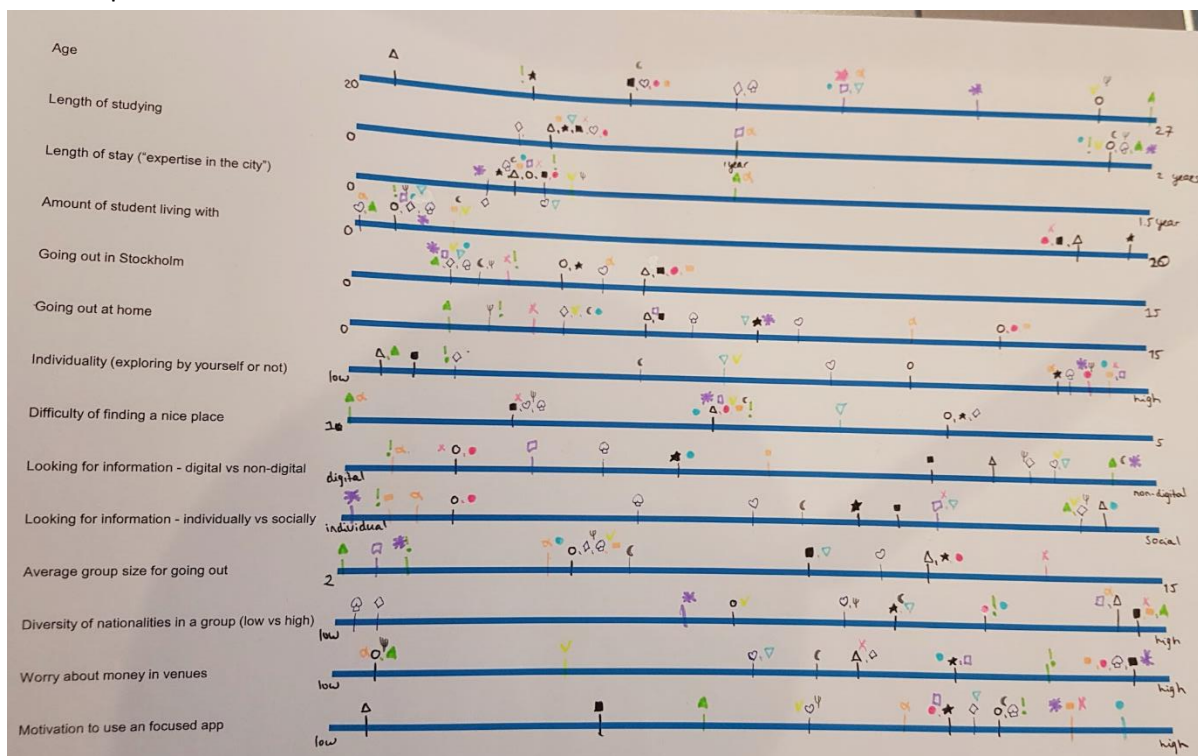 Age
20
27
Length of studying
0
1 year
2 years
Length of stay ("expertise in the city")
0
1.5 year
Amount of student living with
0
20
Going out in Stockholm
0
15
Going out at home
0
15
Individuality (exploring by yourself or not)
low
high
Difficulty of finding a nice place
5
Looking for information - digital vs non-digital
digital
non-digital
Looking for information - individually vs socially
individual
social
Average group size for going out
2
15
Diversity of nationalities in a group (low vs high)
low
high
Worry about money in venues
low
high
Motivation to use an focused app
low
high